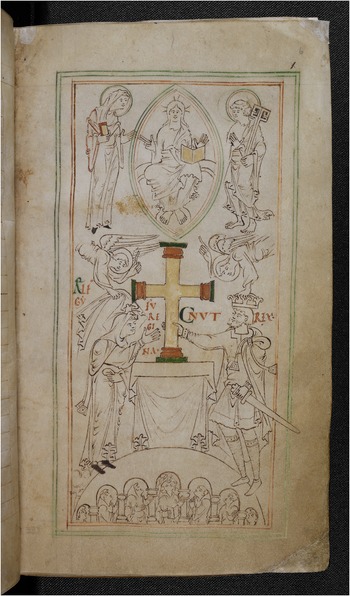 ÆLF
GY
FU
RE
GI
NA·
CNUT REX·